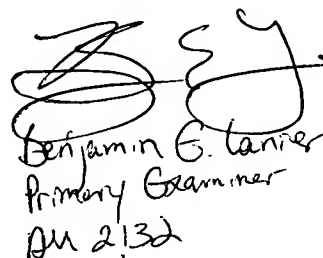 Benjamin E. Lanier
Primary Examiner
AU 2132